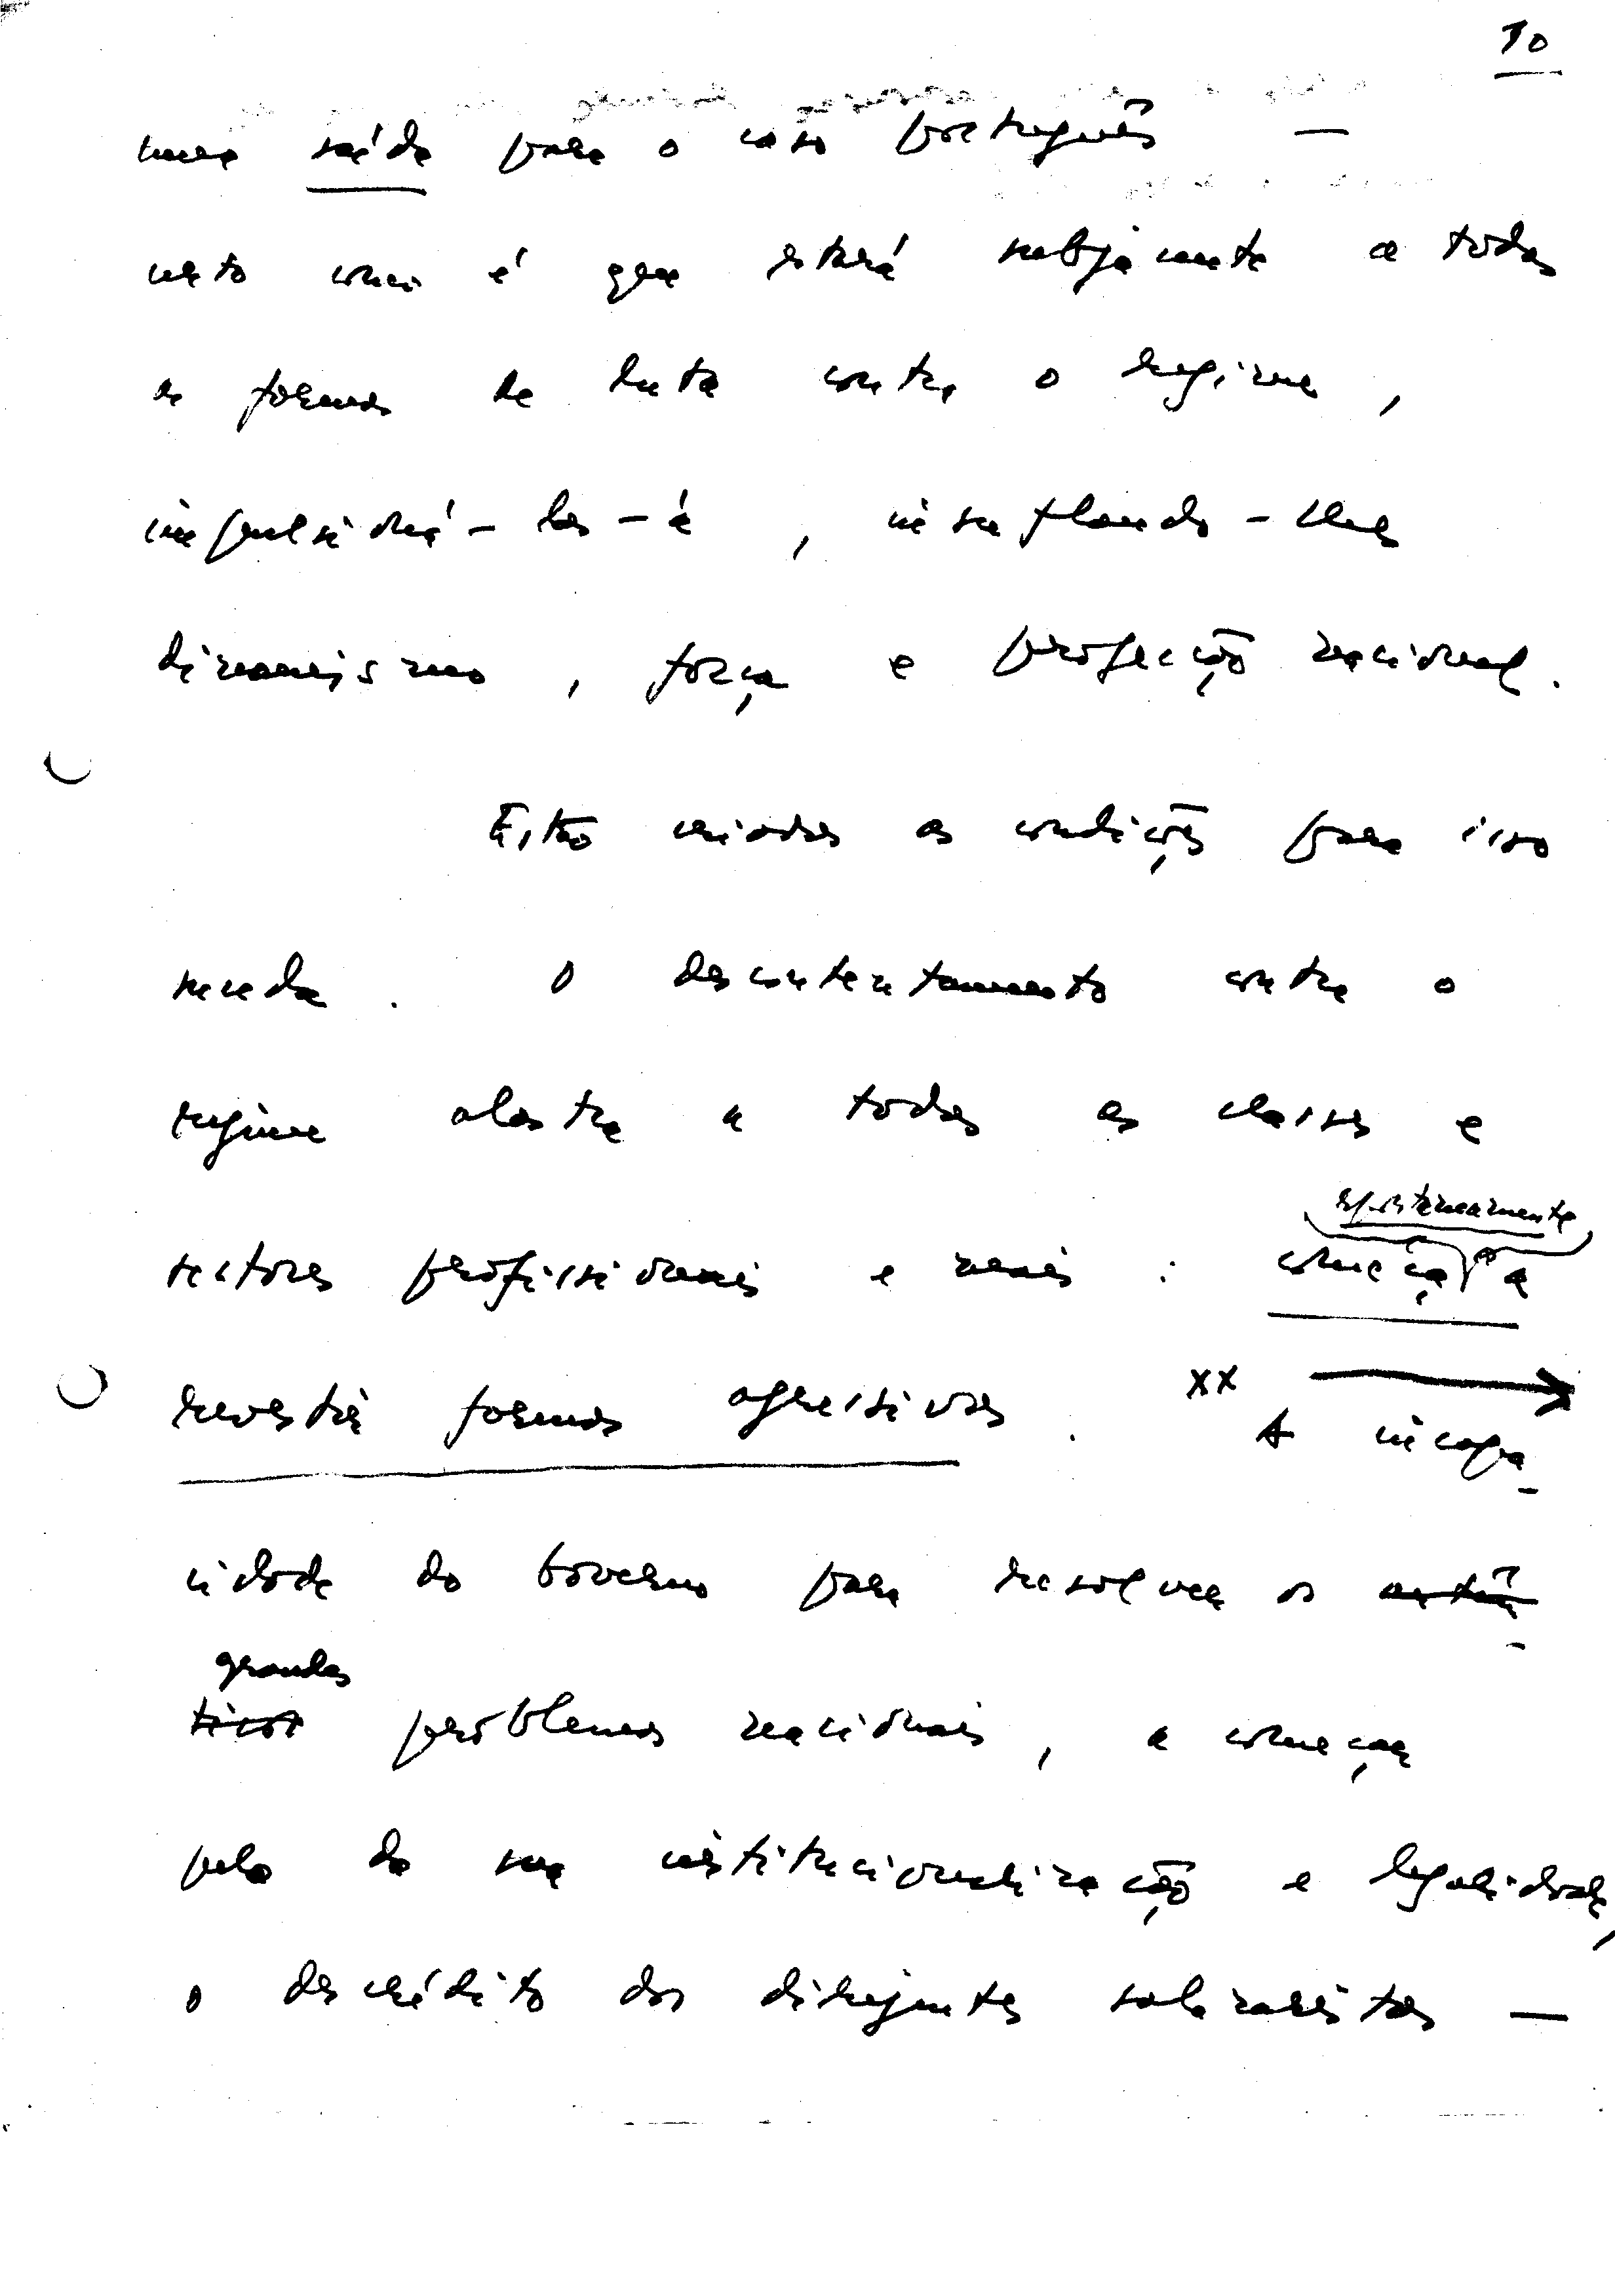 10
uma saída para o caso português —
certo como é que estará subjacente a todas
as formas de luta contra o regime,
impulsioná-las-á, insuflando-lhes
dinamismo, força e projecção nacional.
Estão criadas as condições para isso
suceda. O descontentamento contra o
regime alastra a todas as classes e
espontaneamente
sectores profissionais e mais: começa a
revestir formas agressivas. XX A incapa-
cidade do Governo para resolver os autên-
grandes
ticos problemas nacionais, a começar
pelo da sua institucionalização e legalidade,
o descrédito dos dirigentes salazaristas —